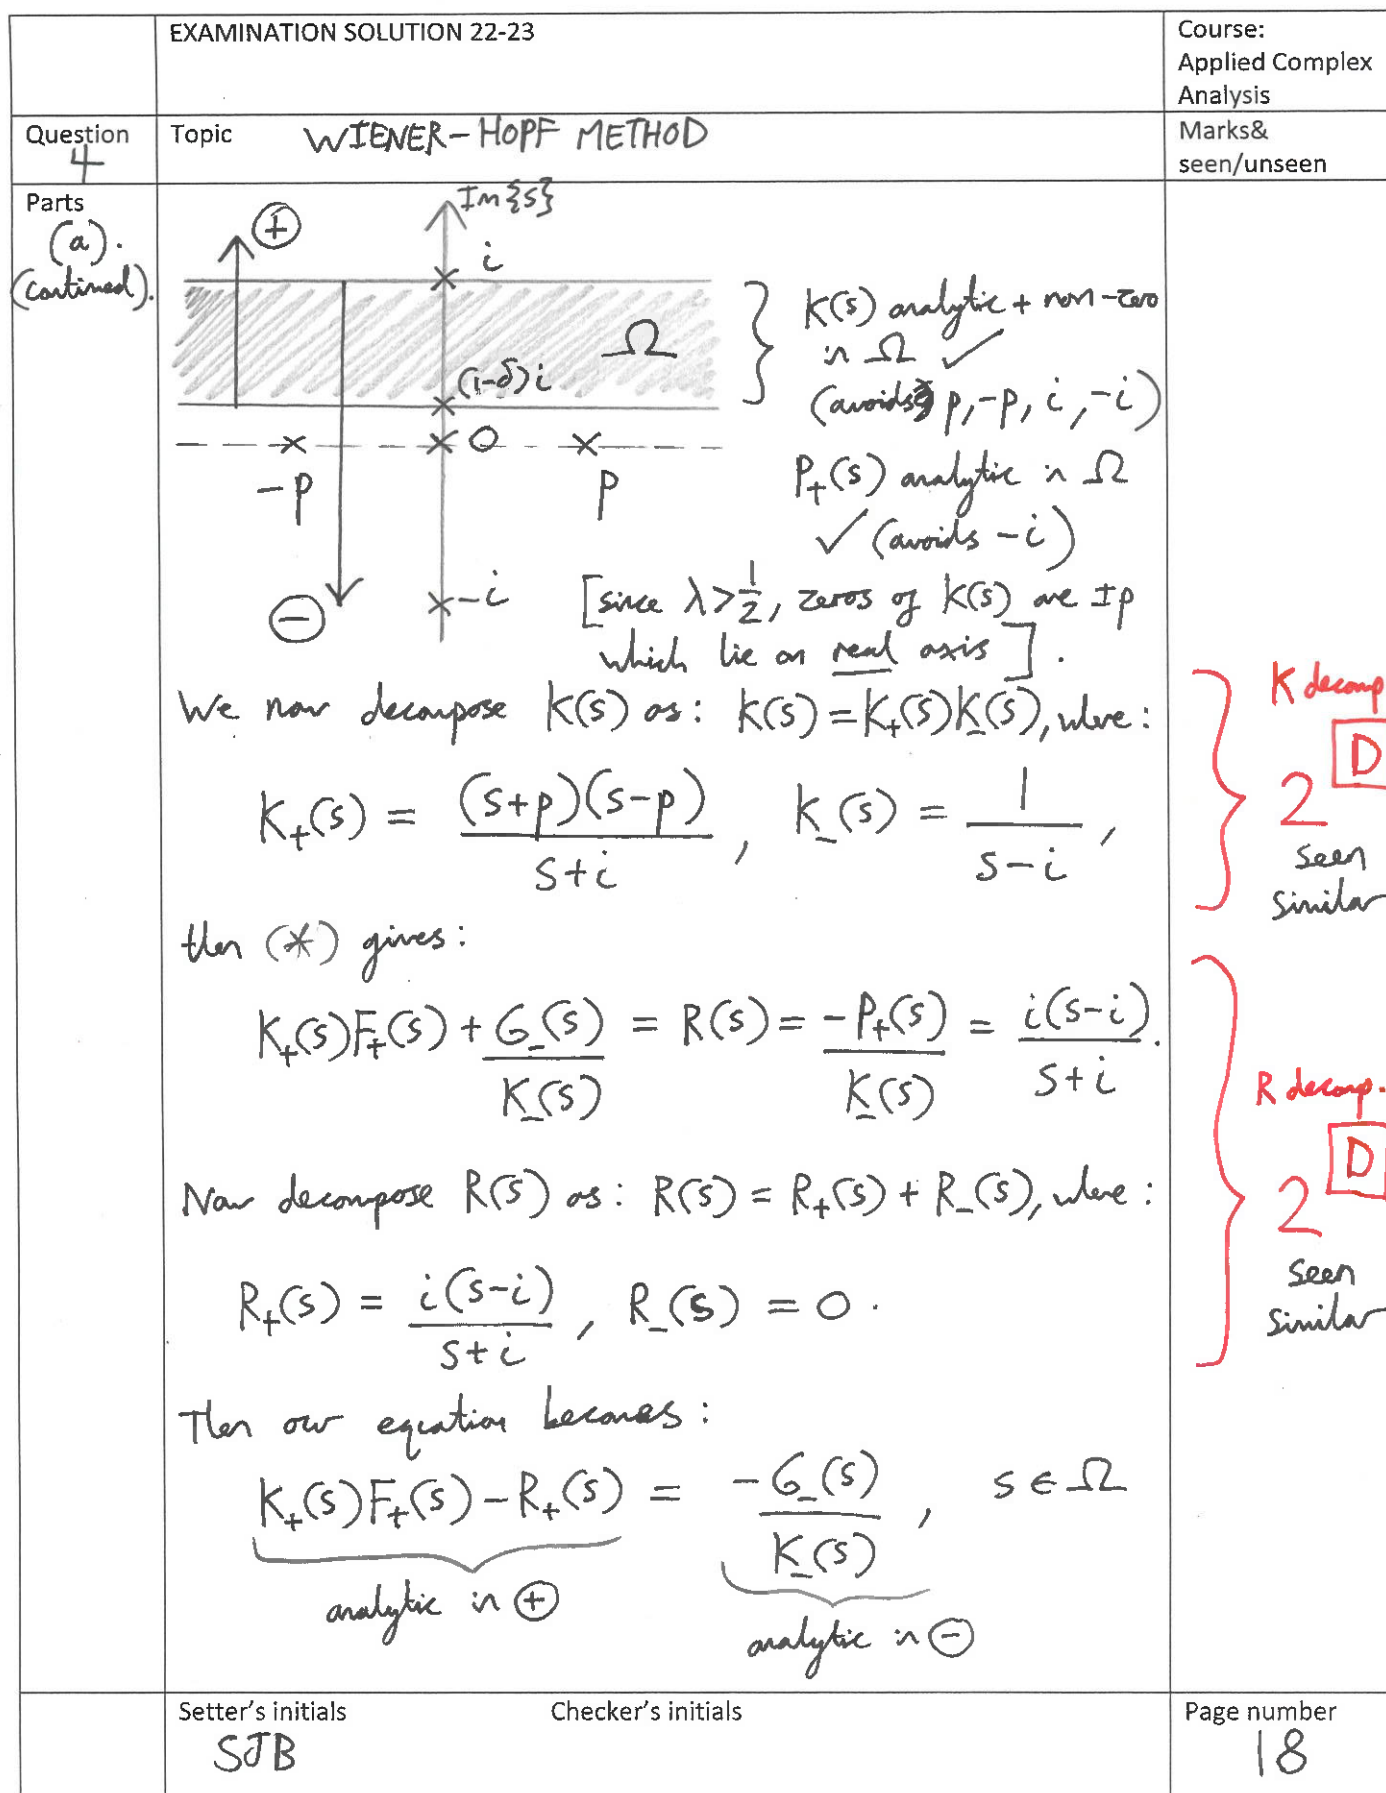 EXAMINATION SOLUTION 22-23
Course:
Applied Complex
Analysis
Question
4
Topic WIENER-HOPF METHOD
Marks&
seen/unseen
Parts
(a).
(continued).
⊕
Im{s}
i
Ω
(1-δ)i
0
-p
p
⊖
-i
K(s) analytic + non-zero
in Ω ✓
(avoids p, -p, i, -i)
P₊(s) analytic in Ω
✓ (avoids -i)
[since λ>1/2, zeros of K(s) are ±p
which lie on real axis].
We now decompose K(s) as: K(s) = K₊(s)K₋(s), where:
K₊(s) = (s+p)(s-p)/(s+i), K₋(s) = 1/(s-i),
K decomp
D
2
seen
similar
then (*) gives:
K₊(s)F₊(s) + G₋(s)/K₋(s) = R(s) = -P₊(s)/K₋(s) = i(s-i)/(s+i).
Now decompose R(s) as: R(s) = R₊(s) + R₋(s), where:
R₊(s) = i(s-i)/(s+i), R₋(s) = 0.
R decomp.
D
2
seen
similar
Then our equation becomes:
K₊(s)F₊(s) - R₊(s) = -G₋(s)/K₋(s), s ∈ Ω
analytic in ⊕
analytic in ⊖
Setter's initials
SJB
Checker's initials
Page number
18